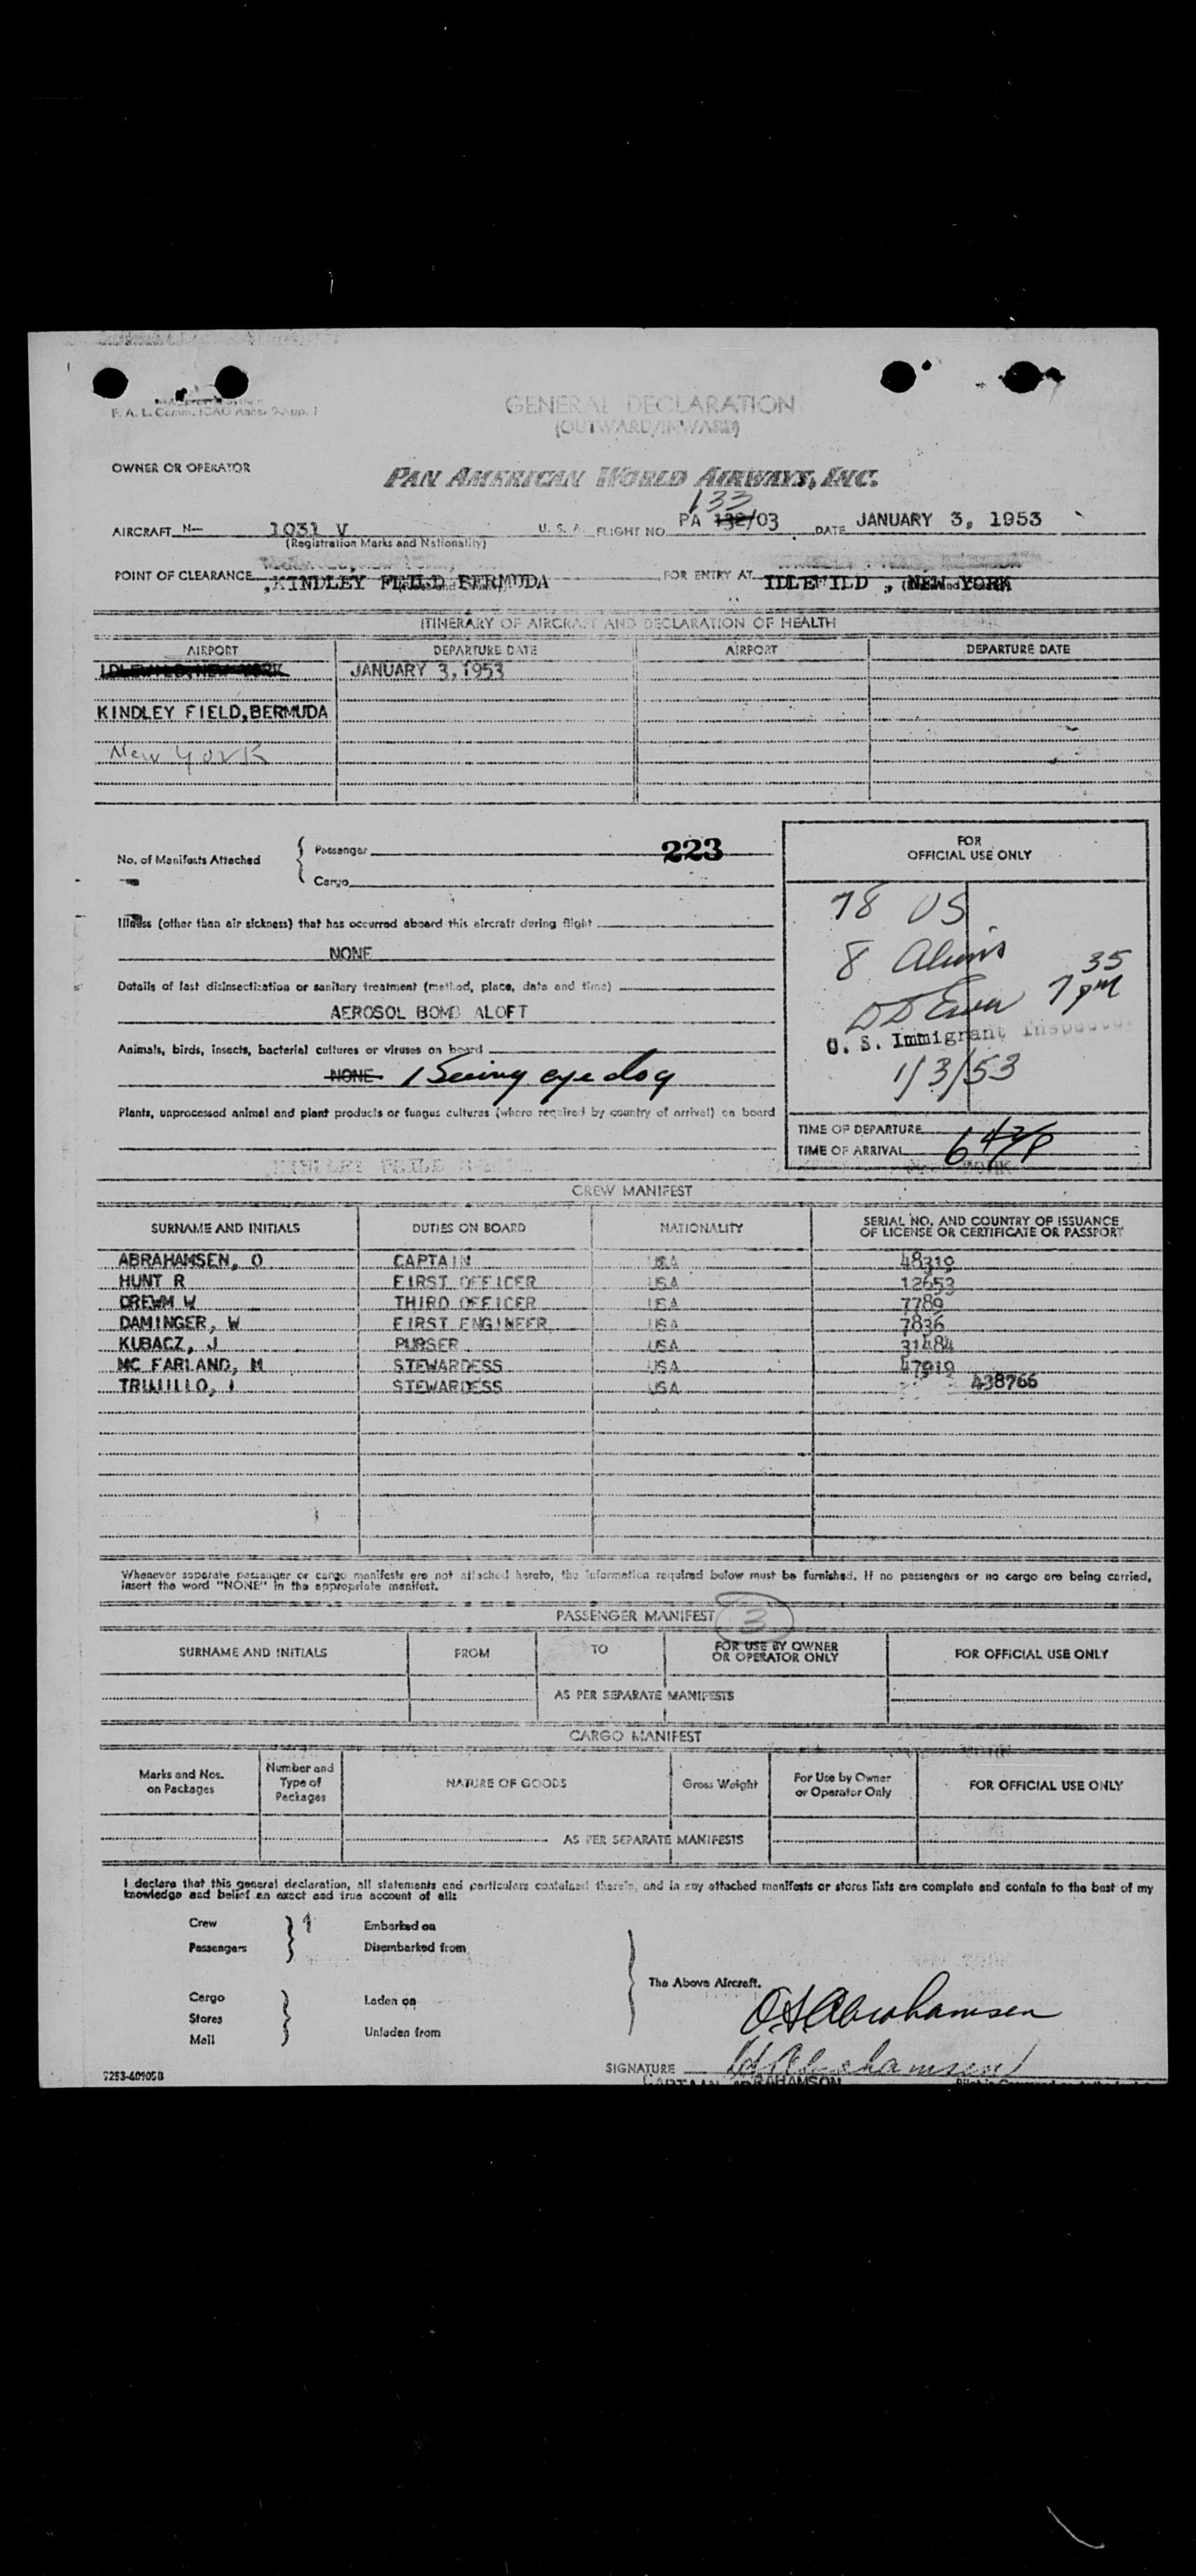 F. A. L. Comm. ICAO Annex 9-App. 1
GENERAL DECLARATION
(OUTWARD/INWARD)
OWNER OR OPERATOR
PAN AMERICAN WORLD AIRWAYS, INC.
133
AIRCRAFT N- 1031 V U. S. A. FLIGHT NO. PA 132/03 DATE JANUARY 3, 1953
(Registration Marks and Nationality)
POINT OF CLEARANCE KINDLEY FEILD BERMUDA FOR ENTRY AT IDLEFILD , NEW YORK
ITINERARY OF AIRCRAFT AND DECLARATION OF HEALTH
AIRPORT DEPARTURE DATE AIRPORT DEPARTURE DATE
IDLEWILD, NEW YORK JANUARY 3,1953
KINDLEY FIELD, BERMUDA
New York
No. of Manifests Attached
Passenger 223
Cargo
Illness (other than air sickness) that has occurred aboard this aircraft during flight
NONE
Details of last disinsectization or sanitary treatment (method, place, date and time)
AEROSOL BOMB ALOFT
Animals, birds, insects, bacterial cultures or viruses on board
NONE 1 Seeing eye dog
Plants, unprocessed animal and plant products or fungus cultures (where required by country of arrival) on board
FOR
OFFICIAL USE ONLY
78 US
8 Aliens
7 35 pm
U. S. Immigrant Inspector
1/3/53
TIME OF DEPARTURE
TIME OF ARRIVAL 642P
KINDLEY FEILD
CREW MANIFEST
SURNAME AND INITIALS DUTIES ON BOARD NATIONALITY SERIAL NO. AND COUNTRY OF ISSUANCE
OF LICENSE OR CERTIFICATE OR PASSPORT
ABRAHAMSEN, O CAPTAIN USA 48319
HUNT R FIRST OFFICER USA 12653
DREWM W THIRD OFFICER USA 7789
DAMINGER, W FIRST ENGINEER USA 7836
KUBACZ, J PURSER USA 31484
MC FARLAND, M STEWARDESS USA 47919
TRUJILLO, I STEWARDESS USA 438766
Whenever separate passenger or cargo manifests are not attached hereto, the information required below must be furnished. If no passengers or no cargo are being carried,
insert the word "NONE" in the appropriate manifest.
PASSENGER MANIFEST 3
SURNAME AND INITIALS FROM TO FOR USE BY OWNER
OR OPERATOR ONLY FOR OFFICIAL USE ONLY
AS PER SEPARATE MANIFESTS
CARGO MANIFEST
Marks and Nos.
on Packages Number and
Type of
Packages NATURE OF GOODS Gross Weight For Use by Owner
or Operator Only FOR OFFICIAL USE ONLY
AS PER SEPARATE MANIFESTS
I declare that this general declaration, all statements and particulars contained therein, and in any attached manifests or stores lists are complete and contain to the best of my
knowledge and belief an exact and true account of all:
Crew Embarked on
Passengers Disembarked from
Cargo Laden on
Stores
Mail Unladen from
The Above Aircraft.
O A Abrahamsen
SIGNATURE Abrahamsen
CAPTAIN ABRAHAMSON
7253-40905B